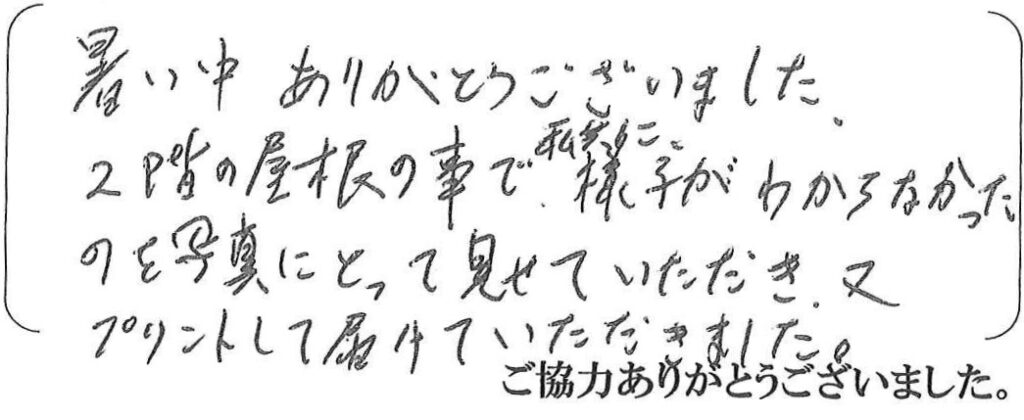 暑い中 ありがとうございました、
2階の屋根の事で、私共に、様子がわからなかった
のを写真にとって見せていただき、又
プリントして届けていただきました。
ご協力ありがとうございました。